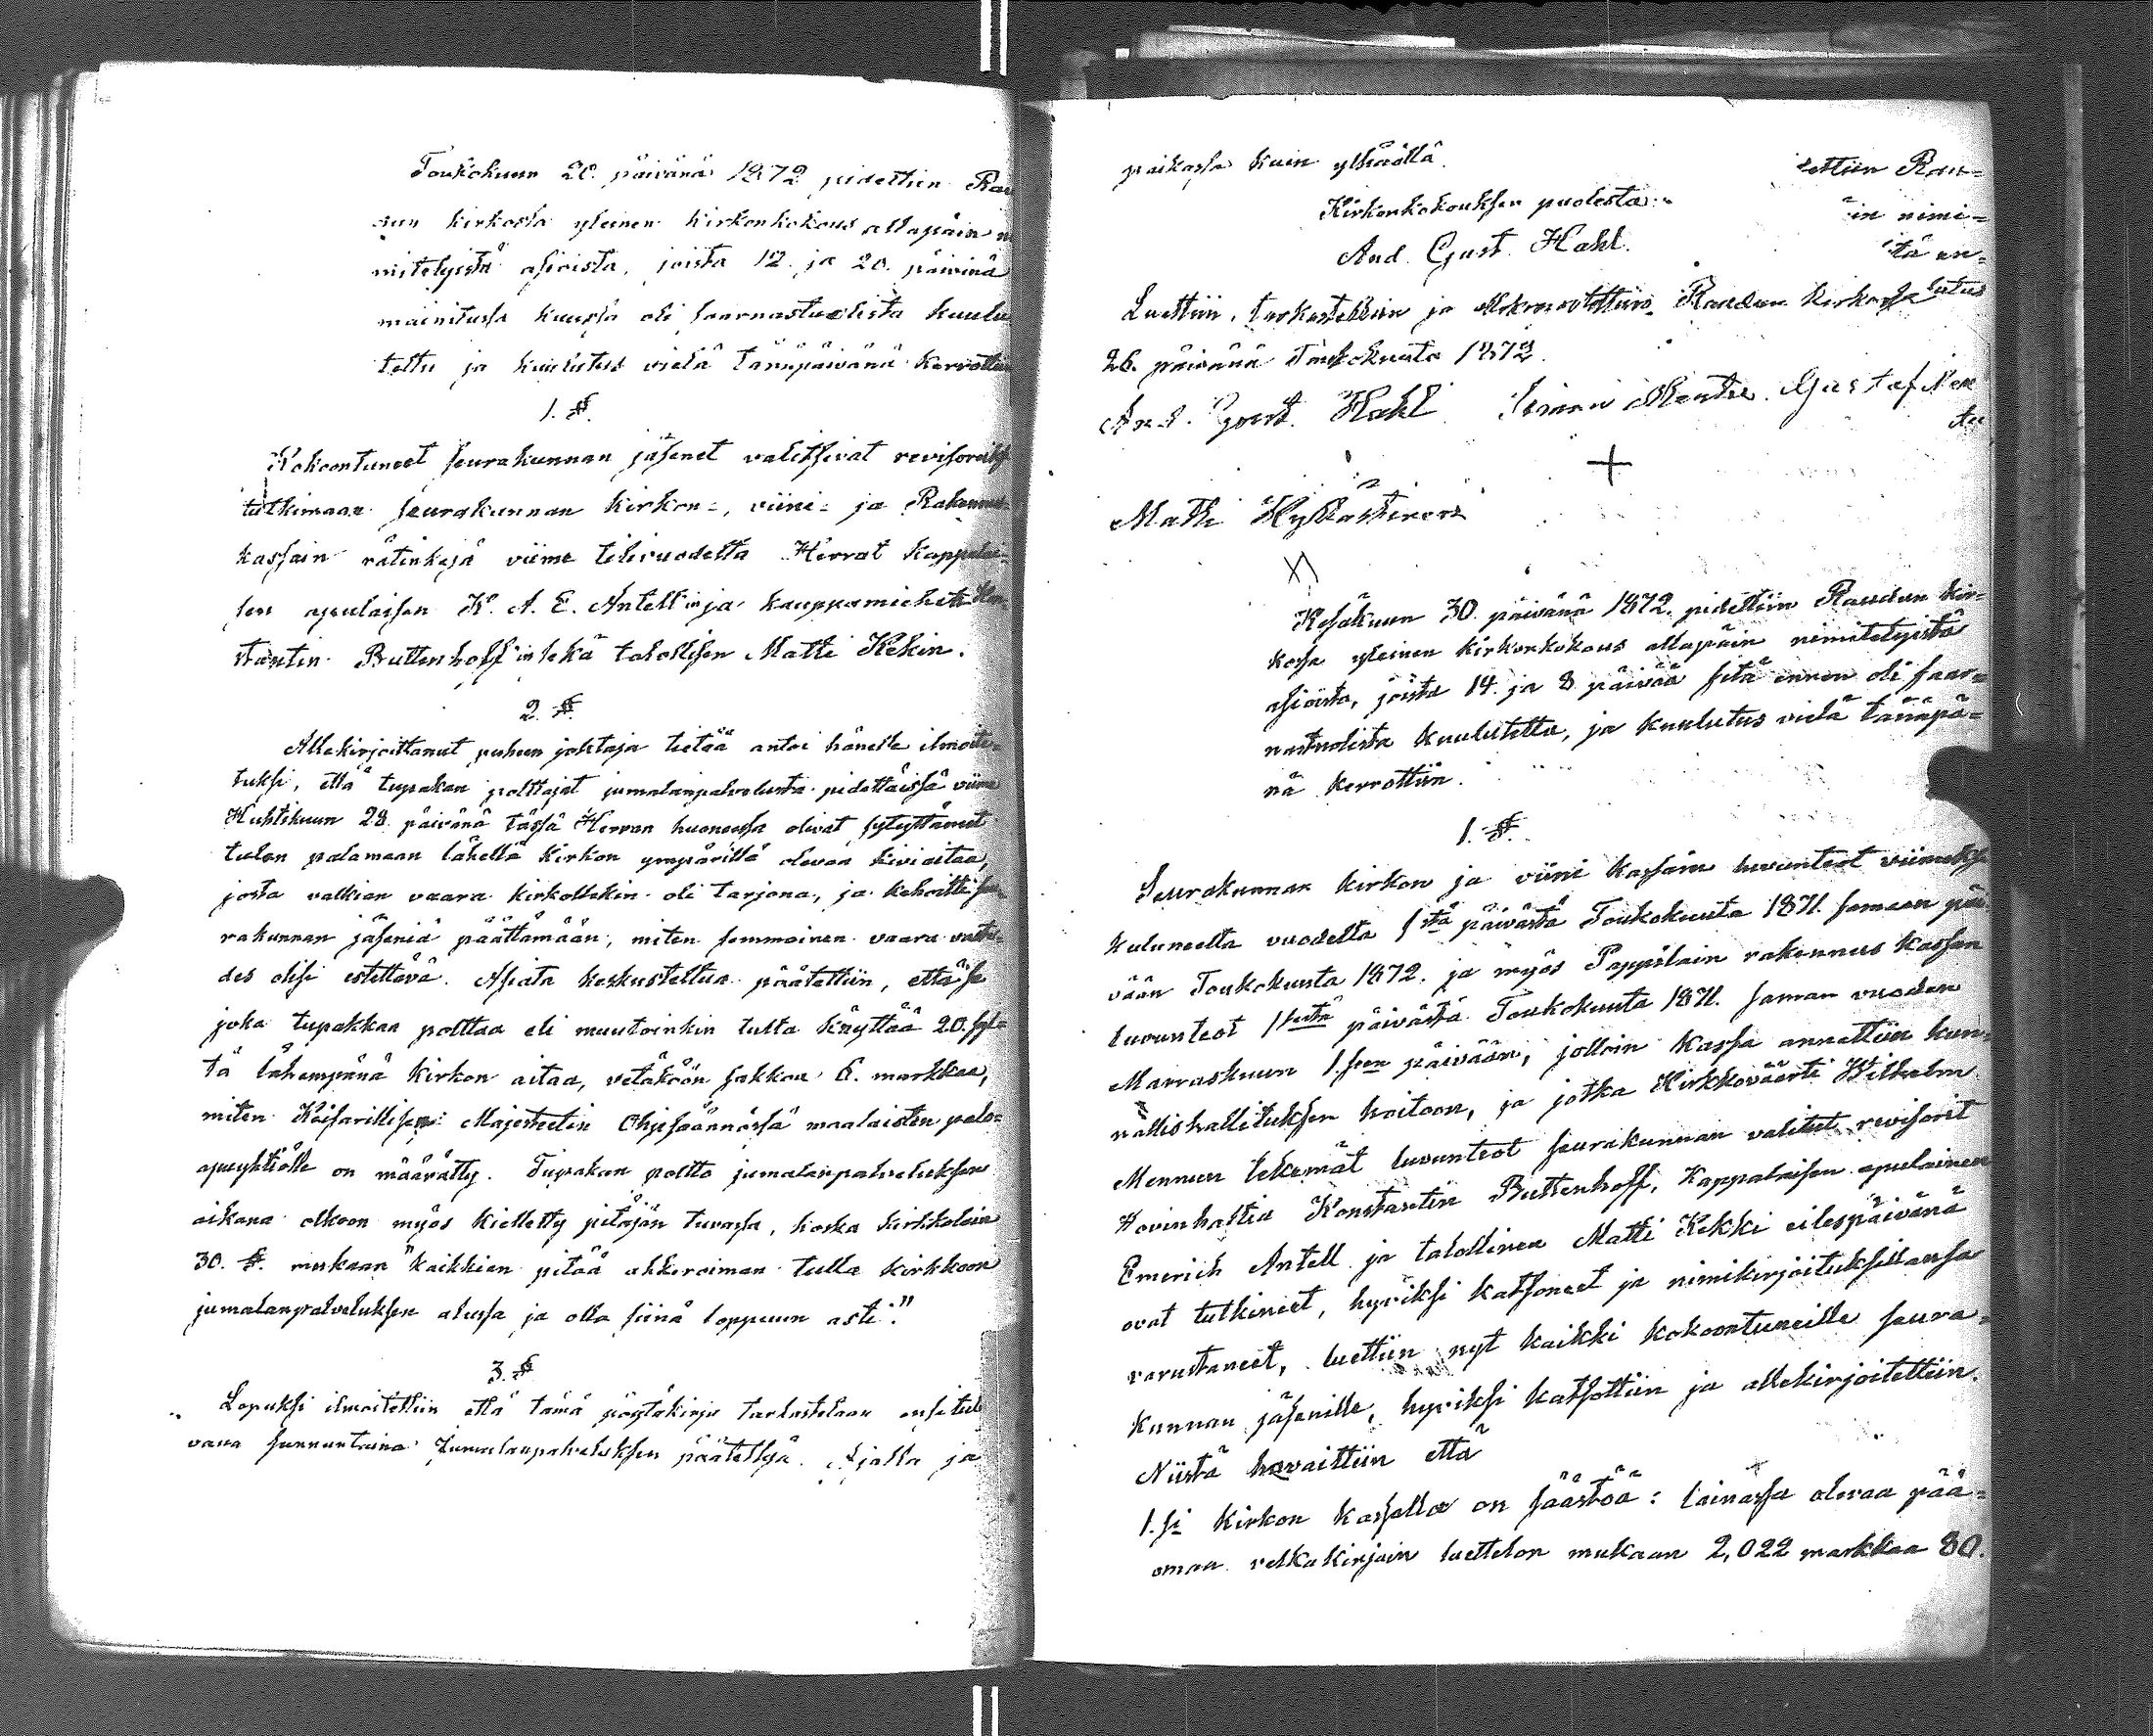 Toukokuun 20. päivänä 1872 pidettiin Rau
dun kirkossa yleinen kirkonkokous allapäin ni
mitetyistä asioista, joista 12. ja 20. päivinä
mainitussa kuussa oli saarnastuolista kuulu
tettu ja kuulutus vielä tänäpäivänä kerrottiin
1. §.
Kokoontuneet seurakunnan jäsenet valitsivat revisoreiksi
tutkimaan seurakunnan kirkon-, viini- ja Rakennus-
kassain rätinkejä viime tilivuodelta Herrat Kappalai-
sen apulaisen K. A. E. Antell'in ja kauppamiehen Kon-
stantin Buttenhoff'in sekä talollisen Matti Kekin.
2. §.
Allekirjoittanut puheen johtaja tietää antoi hänelle ilmoite-
tuksi, että tupakan polttajat jumalanpalvelusta pidettäissä viime
Huhtikuun 28. päivänä tässä Herran huoneessa olivat sytyttäneet
tulen palamaan lähellä kirkon ympärillä olevaa kiviaitaa,
josta valkian vaara kirkollekin oli tarjona, ja kehoitti seu
rakunnan jäseniä päättämään, miten semmoinen vaara vastu-
des olisi estettävä. Asiata keskusteltua päätettiin, että se
joka tupakkaa polttaa eli muutoinkin tulta käyttää 20. syl-
tä lähempänä kirkon aitaa, vetäköön sakkoa 6. markkaa,
miten Keisarillisen Majesteetin Ohjesäännössä maalaisten palo-
apuyhtiölle on määrätty. Tupakan poltto jumalanpalveluksen
aikana olkoon myös kielletty pitäjän tuvassa, koska kirkkolain
30. §. mukaan "kaikkien pitää ahkeroiman tulla kirkkoon
jumalanpalveluksen alussa ja olla siinä loppuun asti."
3. §
Lopuksi ilmoitettiin että tämä pöytäkirja tarkastetaan ensitule
vana sunnuntaina Jumalanpalveluksen päätettyä. Ajalla ja
paikassa kuin ylhäällä.
Kirkonkokouksen puolesta:
And. Gust. Hahl.
ettiin Rau-
in nimi-
tä en-
lutus
Luettiin, tarkastettiin ja Raudun kirkossa
26. päivänä Toukokuuta 1872.
And. Gust. Hahl Simon Gustaf
Matti
X)
Kesäkuun 30. päivänä 1872. pidettiin Raudun kir-
kossa yleinen kirkonkokous allapäin nimitetyistä
asioista, joista 14. ja 8 päivää sitä ennen oli saar-
nastuolista kuulutettu, ja kuulutus vielä tänäpä-
nä kerrottiin.
1. §.
Seurakunnan kirkon ja viini kassain luvunteot viimeksi
kuluneelta vuodelta 1stä päivästä Toukokuuta 1871. samaan päi
vään Toukokuuta 1872. ja myös Pappilain rakennus kassan
luvunteot 1stä päivästä Toukokuuta 1871. saman vuoden
Marraskuun 1.sen päivään, jolloin kassa annettiin kun-
nallishallituksen hoitoon, ja jotka Kirkkoväärti Wilhelm
Mennun tekemät luvunteot seurakunnan valitut revisorit
Hovinhaltia Konstantin Buttenhoff, Kappalaisen apulainen
Emerich Antell ja talollinen Matti Kekki eilespäivänä
ovat tutkineet, hyviksi katsoneet ja nimikirjoituksillansa
varustaneet, luettiin nyt kaikki kokoontuneille seura-
kunnan jäsenille, hyviksi katsottiin ja allekirjoitettiin.
Niistä havaittiin että
1.si Kirkon kassalla on säästöä: lainassa olevaa pää-
omaa velkakirjain luettelon mukaan 2,022 markkaa 80.